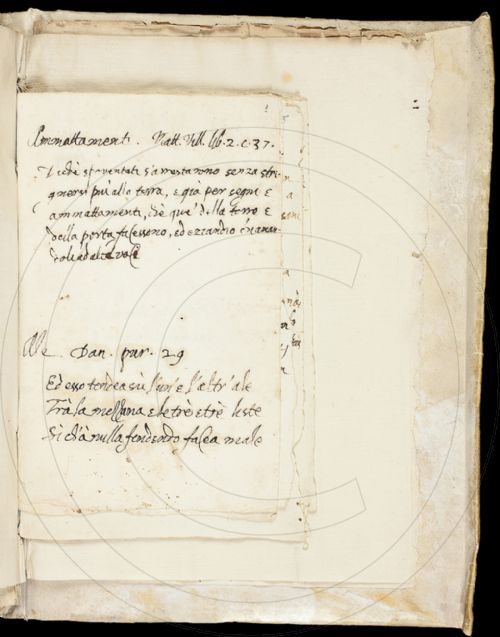 Ammattamenti. Matt. Vill. lib. 2. c. 37.
I chè spaventati s'arrestarono senza stri
gnersi più alla terra, e già per segni e
ammattamenti, chè que' della terra e
della porta facessono, ed eziandio
Ale. Dan. pur. 29
Ed esso tendea sù l'un' e l'altr' ale
Trà la mezzana e le trè e trè liste
Si ch'à nulla fendendo facea male